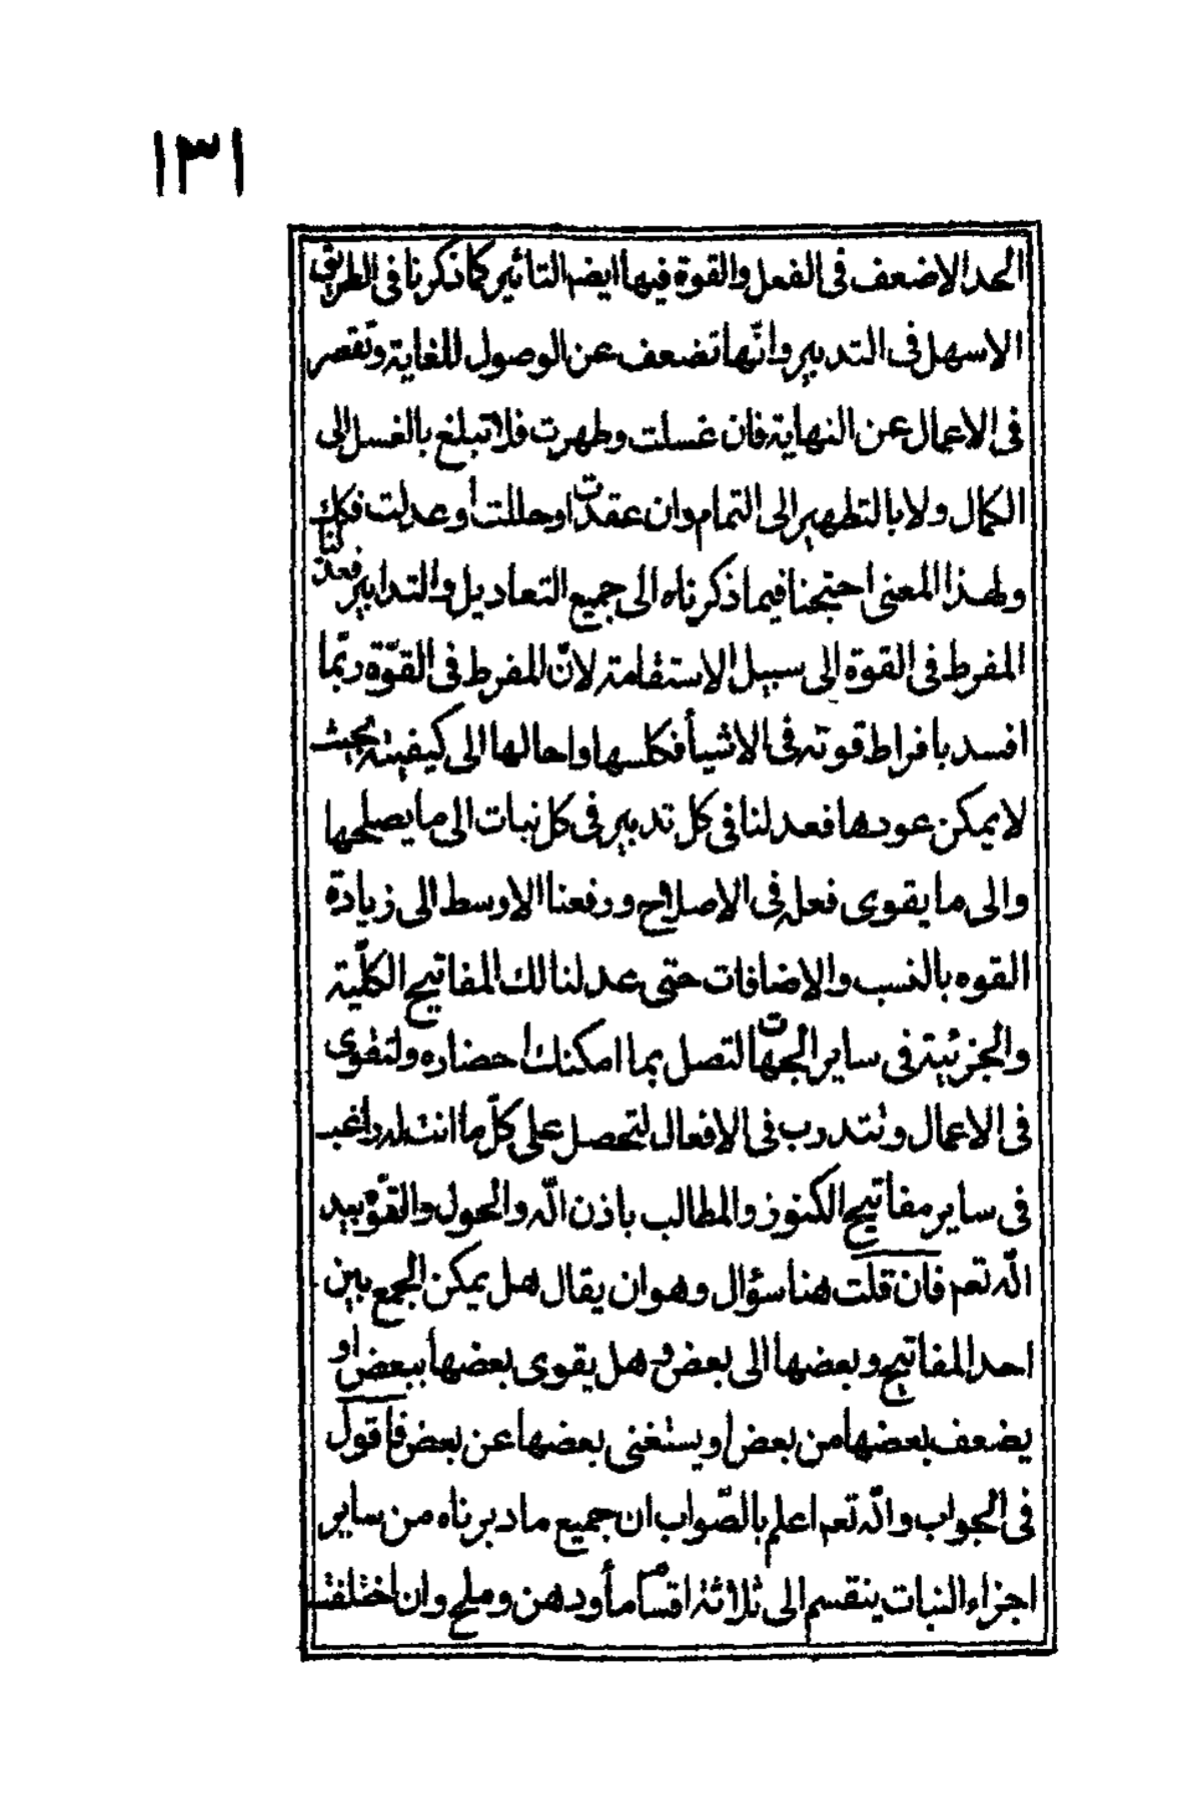 ١٣١
الحد الاضعف فى الفعل والقوة فيها ايضم التاثير كما ذكرنا فى الطريق
الاسهل فى التدبير وانّها تضعف عن الوصول للغاية وتقصر
فى الاعمال عن النهاية فان غسلت وطهرت فلا تبلغ بالغسل الى
الكمال ولا بالتطهير الى التمام وان عقدت او حللت أو عدلت فكك
ولهذا المعنى احتجنا فيما ذكرناه الى جميع التعاديل والتدابير فعدلنا
المفرط فى القوة الى سبيل الاستقامة لانّ المفرط فى القوّة ربّما
افسد بافراط قوته فى الاشيأ فكلسها واحالها الى كيفية بحيث
لا يمكن عودها فعدلنا فى كل تدبير فى كل نبات الى ما يصلحها
والى ما يقوى فعله فى الاصلاح ورفعنا الاوسط الى زيادة
القوه بالنسب والاضافات حتى عدلنا لك المفاتيح الكلّية
والجزئية فى ساير الجهات لتصل بما امكنك احضاره ولتقوى
فى الاعمال وتتدرب فى الافعال لتحصل على كلّ ما انت له راغب
فى ساير مفاتيح الكنوز والمطالب باذن الله والحول والقوّة بيد
الله تعم فان قلت هنا سؤال وهو ان يقال هل يمكن الجمع بين
احد المفاتيح وبعضها الى بعض وهل يقوى بعضها ببعض او
يضعف بعضها من بعض او يستغنى بعضها عن بعض فاقول
فى الجواب والله تعم اعلم بالصّواب ان جميع ما دبرناه من ساير
اجزاء النبات ينقسم الى ثلاثة اقسام مأ ودهن وملح وان اختلفت